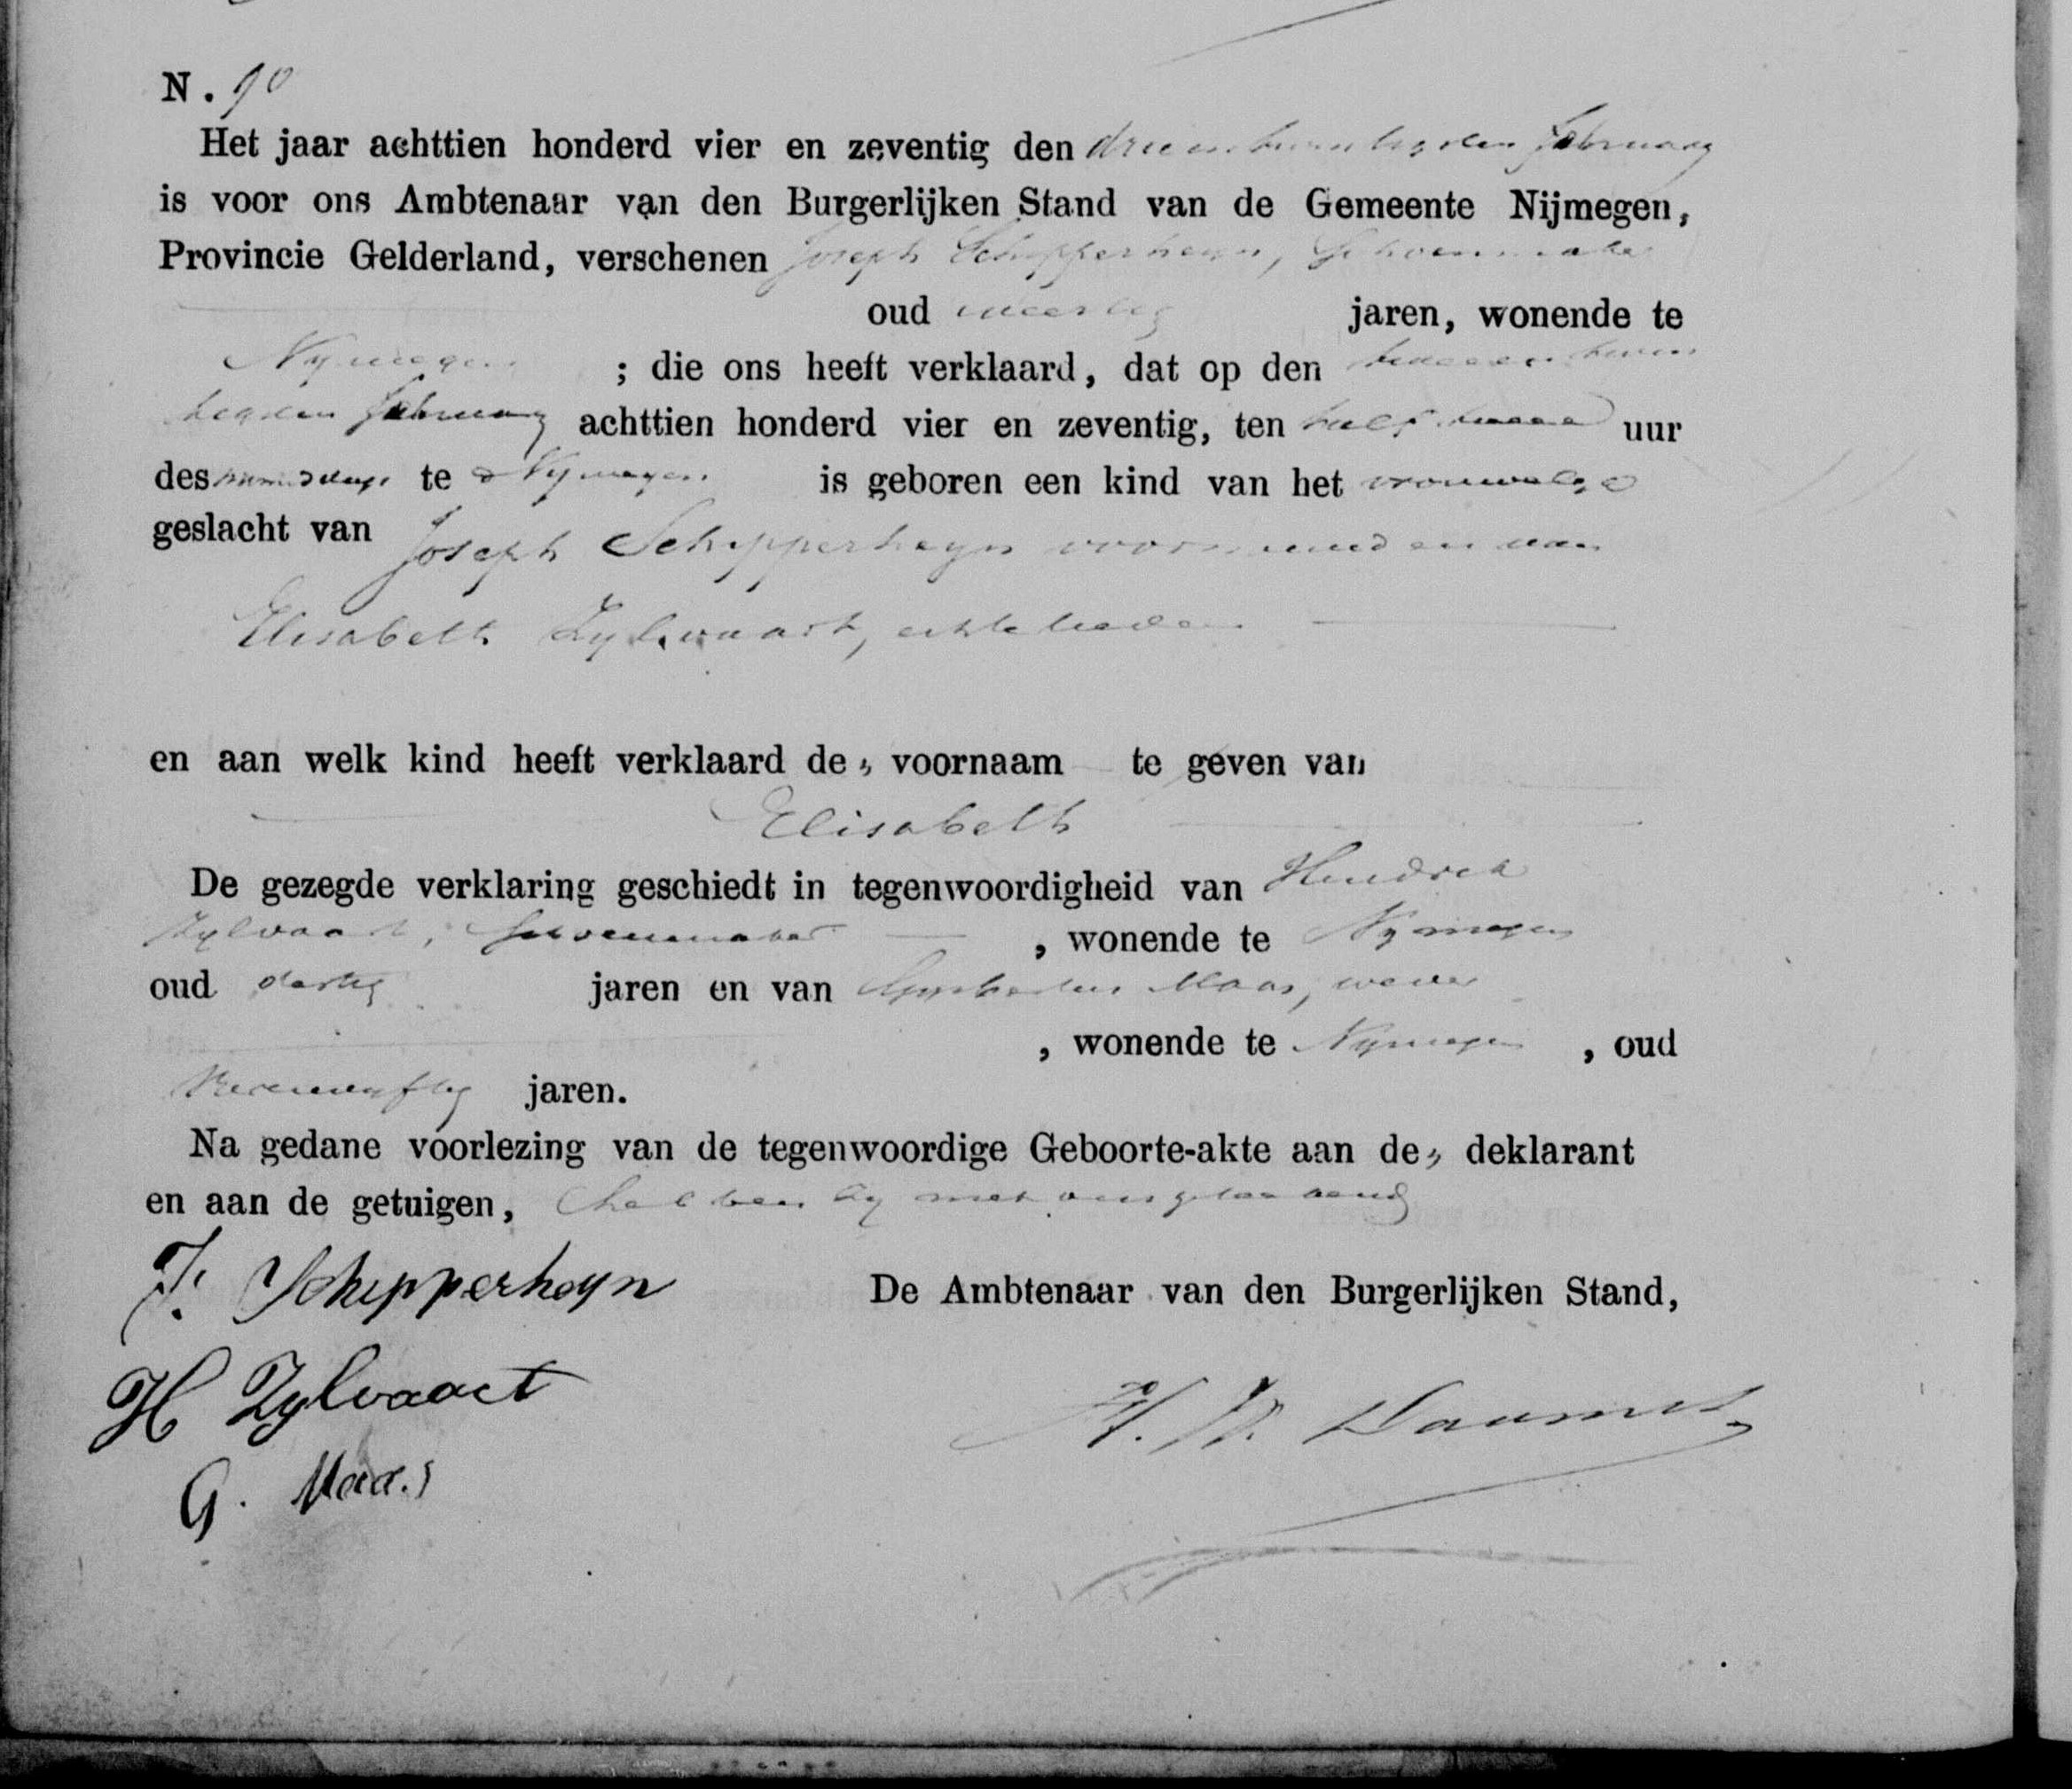 N. 90
Het jaar achttien honderd vier en zeventig den drieentwintigsten Februarij
is voor ons Ambtenaar van den Burgerlijken Stand van de Gemeente Nijmegen,
Provincie Gelderland, verschenen Joseph Schipperheyn, Schoenmaker
oud veertig jaren, wonende te
Nymegen ; die ons heeft verklaard, dat op den tweeentwin
tigsten Februarij achttien honderd vier en zeventig, ten half twee uur
des namiddags te Nymegen is geboren een kind van het vrouwelyke
geslacht van Joseph Schipperheyn voornoemd en van
Elisabeth Zylvaart, echtelieden
en aan welk kind heeft verklaard de, voornaam te geven van
Elisabeth
De gezegde verklaring geschiedt in tegenwoordigheid van Hendrik
Zylvaart, Schoenmaker , wonende te Nymegen
oud dertig jaren en van Maas, wever
, wonende te Nymegen , oud
jaren.
Na gedane voorlezing van de tegenwoordige Geboorte-akte aan de, deklarant
en aan de getuigen, hebben zy met ons geteekend
J. Schipperheyn De Ambtenaar van den Burgerlijken Stand,
H Zylvaart
G. Maas